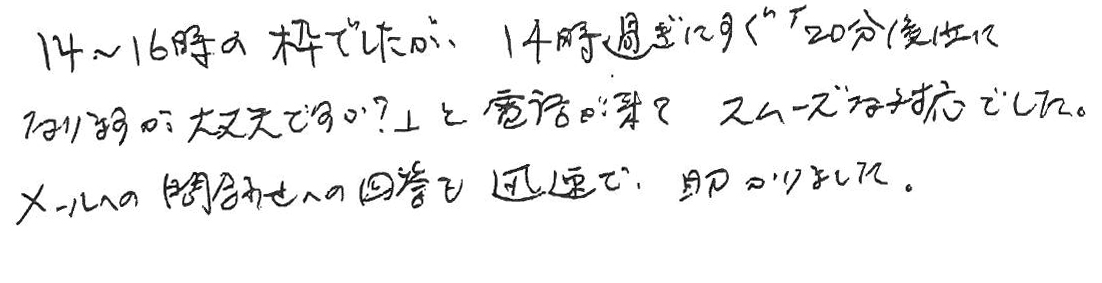 14〜16時の枠でしたが、14時過ぎにすぐ「20分後位に
なりますが大丈夫ですか?」と電話が来て スムーズな対応でした。
メールへの問合わせへの回答も迅速で、助かりました。